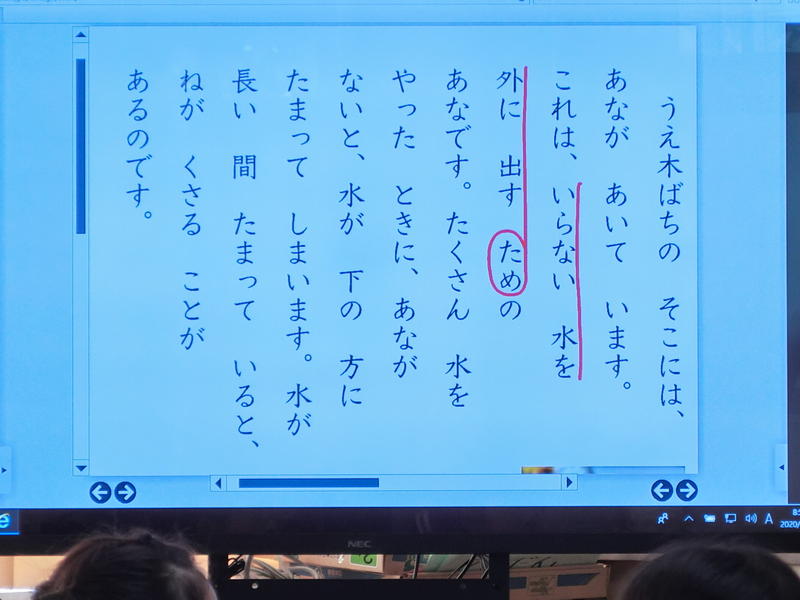 うえ木ばちの　そこには、
あなが　あいて　います。
これは、いらない　水を
外に　出す　ための
あなです。たくさん　水を
やった　ときに、あなが
ないと、水が　下の　方に
たまって　しまいます。水が
長い　間　たまって　いると、
ねが　くさる　ことが
あるのです。
A
NEC